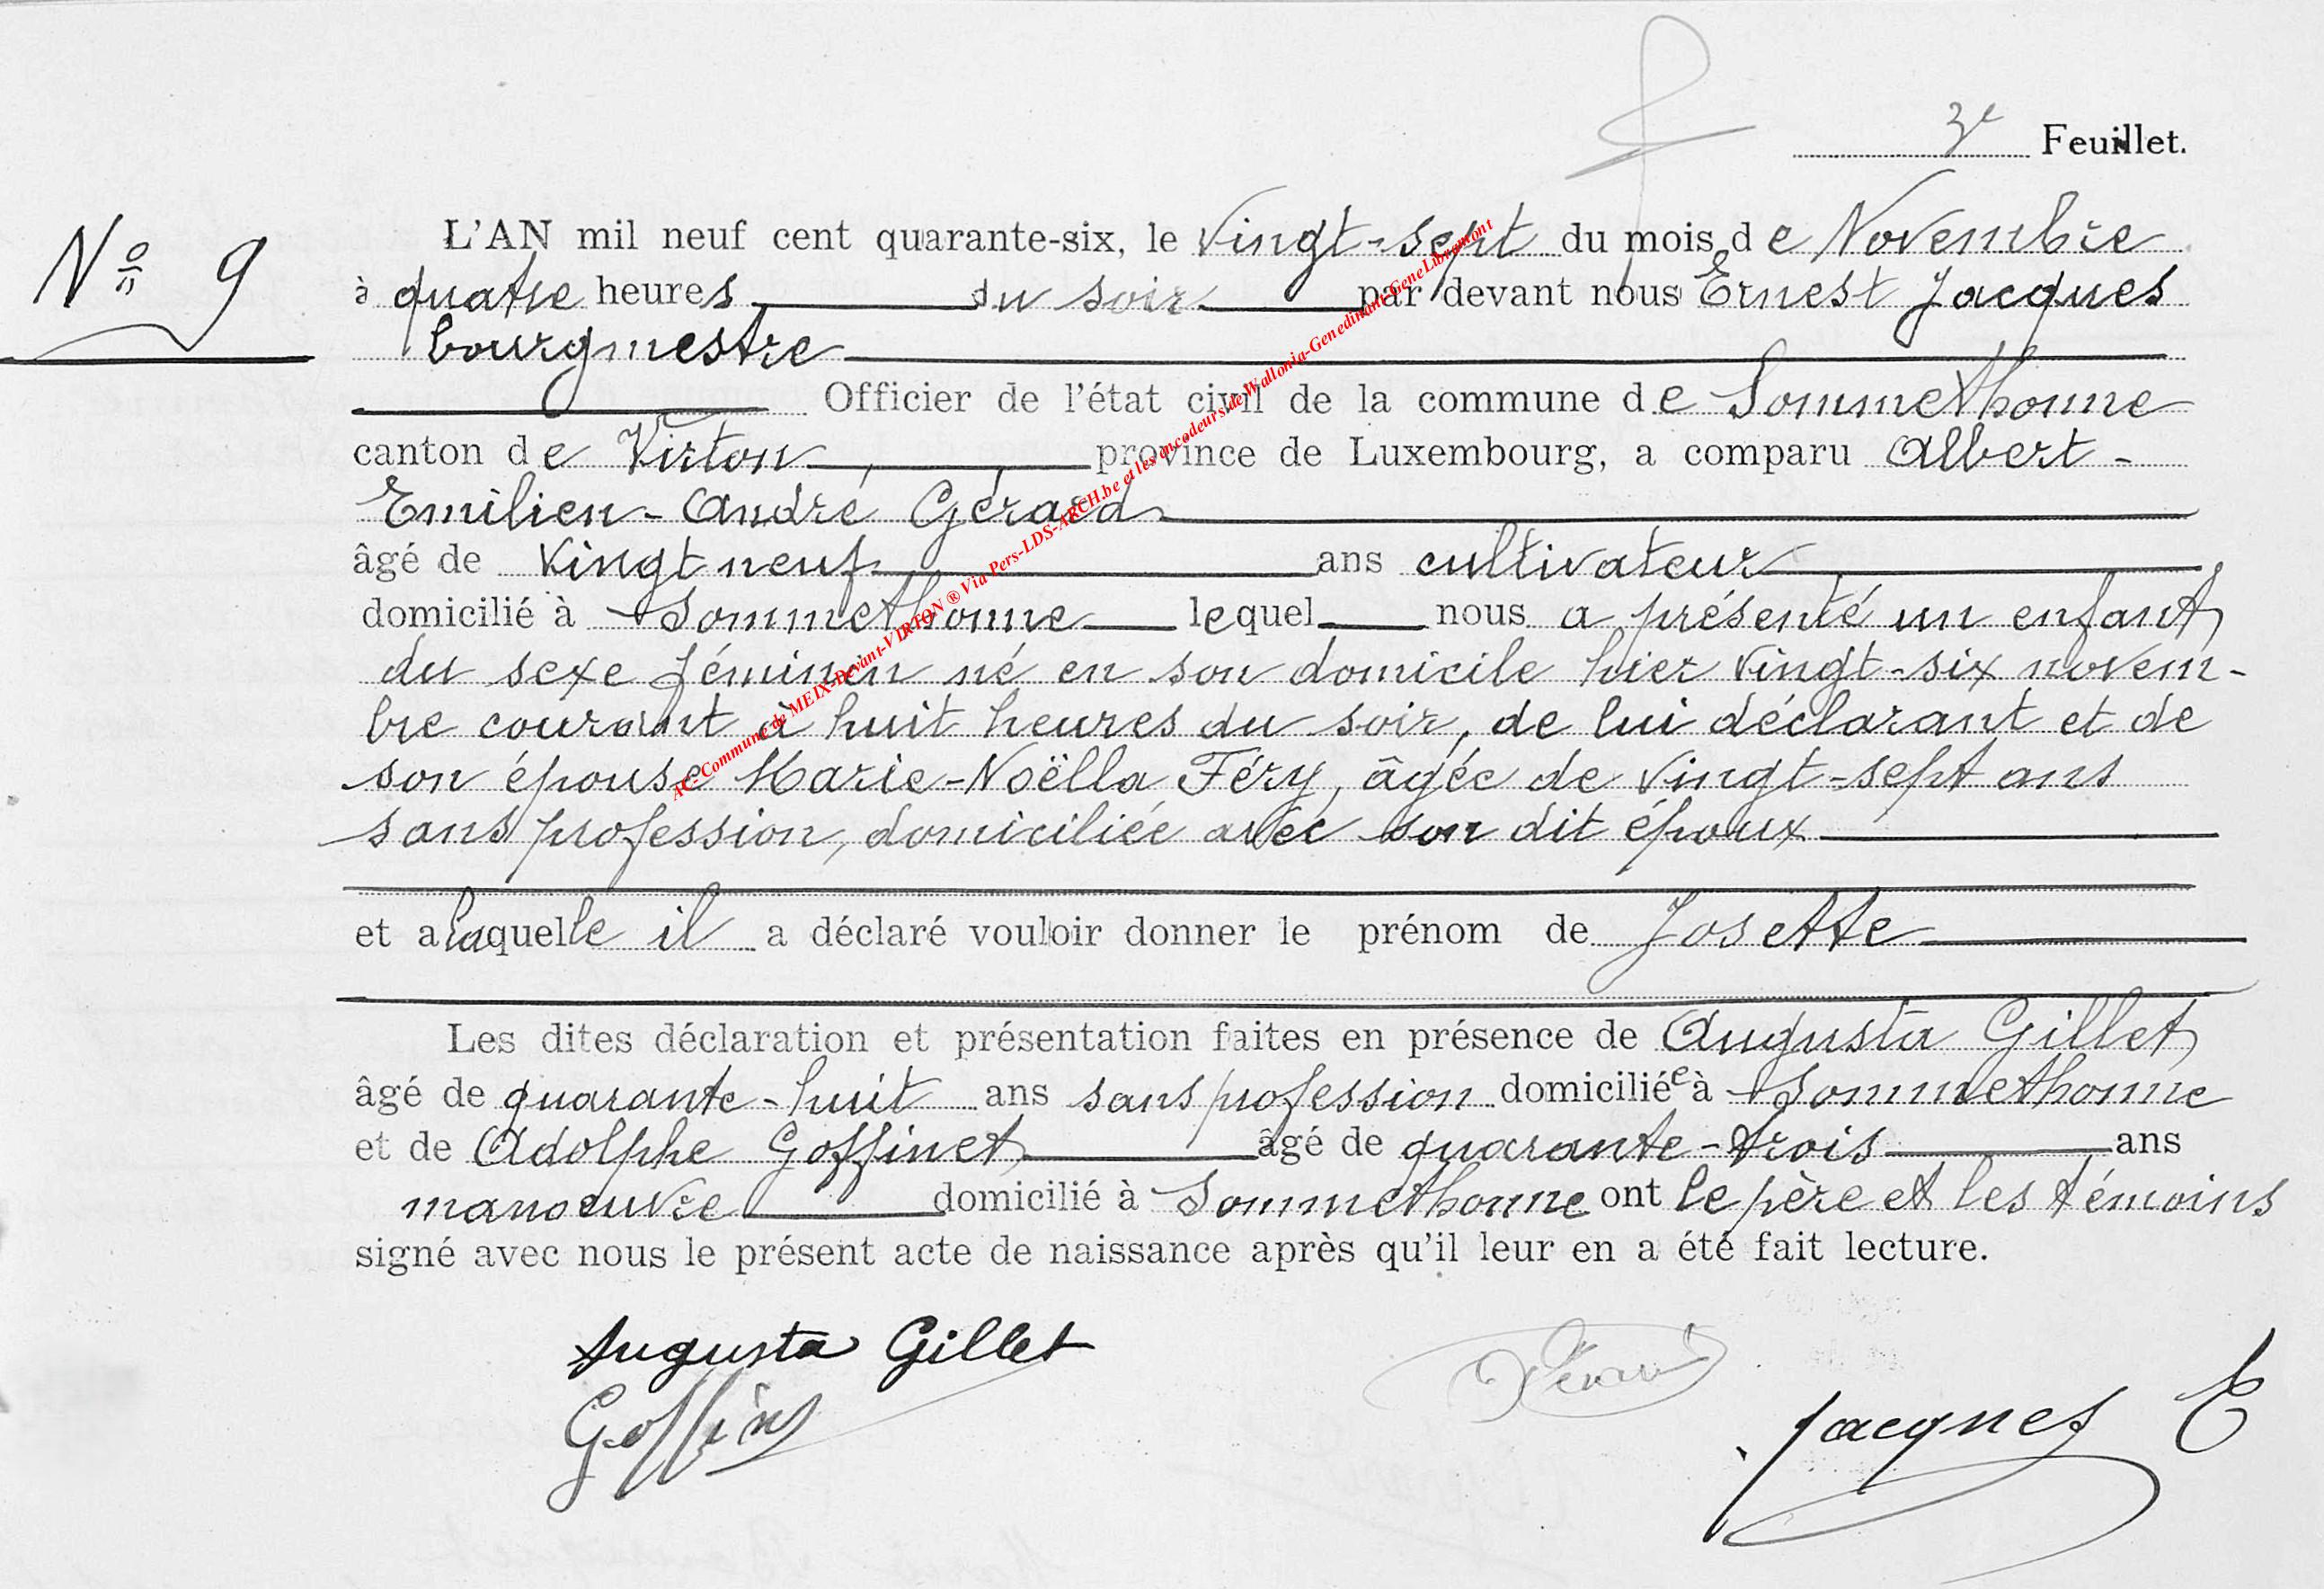 3e Feuillet.
No 9
L'AN mil neuf cent quarante-six, le vingt-sept du mois de Novembre
à quatre heures du soir par devant nous Ernest Jacques
bourgmestre
Officier de l'état civil de la commune de Sommethonne
canton de Virton, province de Luxembourg, a comparu Albert-
Emilien-André Gérard
âgé de vingt neuf ans cultivateur
domicilié à Sommethonne lequel nous a présenté un enfant
du sexe féminin né en son domicile hier vingt-six novem-
bre courant à huit heures du soir, de lui déclarant et de
son épouse Marie-Noëlla Féry, âgée de vingt-sept ans
sans profession, domiciliée avec son dit époux
et a laquelle il a déclaré vouloir donner le prénom de Josette
Les dites déclaration et présentation faites en présence de Augusta Gillet
âgé de quarante-huit ans sans profession domiciliée à Sommethonne
et de Adolphe Goffinet âgé de quarante-trois ans
manoeuvre domicilié à Sommethonne ont le père et les témoins
signé avec nous le présent acte de naissance après qu'il leur en a été fait lecture.
Augusta Gillet
Gérard
Jacques E
AC-Commune de MEIX-Devant-VIRTON ® Via Pers-LDS-ARCH.be et les encodeurs de Wallonia-Genedinant-GeneLibramont